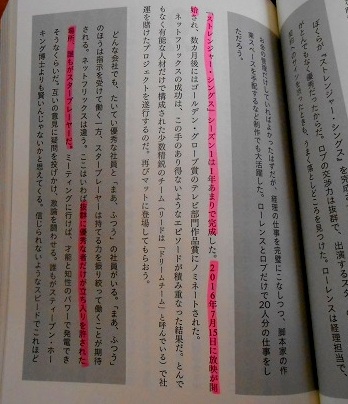 ぼくらが『ストレンジャー・シングス』を完成
がとんでもなく優秀だったからだ。ロブの交渉力は抜群で、出演するスター
も、うまく落としどころを見つけた。ローレンスは経理担当で、
お金の管理だけしていればよかったはずだが、経理の仕事を完璧にこなしつつ、脚本家の作
業スペースを手配するなど制作でも大活躍した。ローレンスとロブだけで20人分の仕事をし
ただろう。
『ストレンジャー・シングス』シーズン1は1年あまりで完成した。2016年7月15日に放映が開
始され、数カ月後にはゴールデン・グローブ賞のテレビ部門作品賞にノミネートされた。
ネットフリックスの成功は、この手のあり得ないようなエピソードが積み重なった結果だ。とんで
もなく有能な人材だけで構成された少数精鋭のチーム（リードは「ドリームチーム」と呼んでいる）で社
運を賭けたプロジェクトを遂行するのだ。再びマットに登場してもらおう。
どんな会社でも、たいてい優秀な社員と「まあ、ふつう」の社員がいる。「まあ、ふつう」
のほうは指示を受けて働く一方、スタープレーヤーは持てる力を振り絞って働くことが期待
される。ネットフリックスは違う。ここはいわば抜群に優秀な者だけが立ち入りを許された
場所、誰もがスタープレーヤーだ。ミーティングに行けば、才能と知性のパワーで発電でき
そうなくらいだ。互いの意見に疑問を投げかけ、激論を闘わせる。誰もがスティーブン・ホー
キング博士よりも賢い人じゃないかと思えてくる。信じられないようなスピードでこれほど